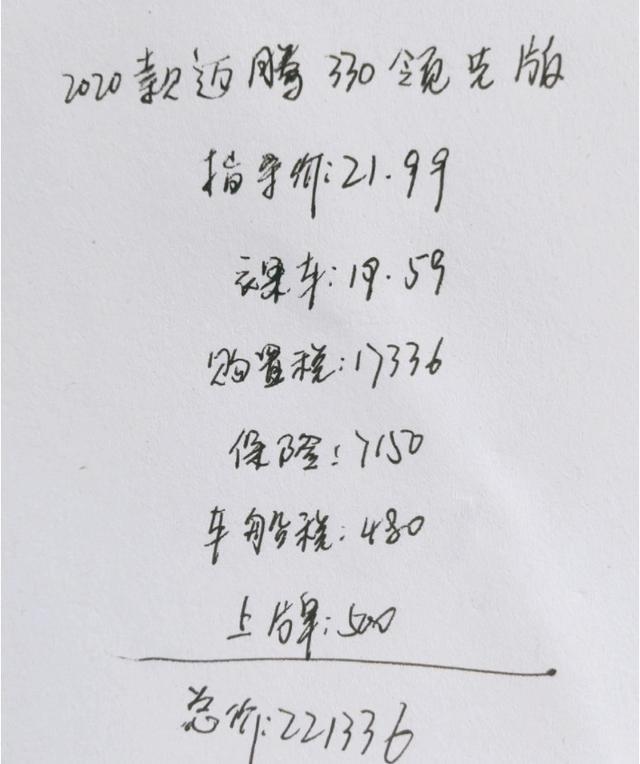 2020款迈腾330领先版
指导价:21.99
裸车:19.59
购置税:17336
保险:7150
车船税:480
上牌:500
总价:221336